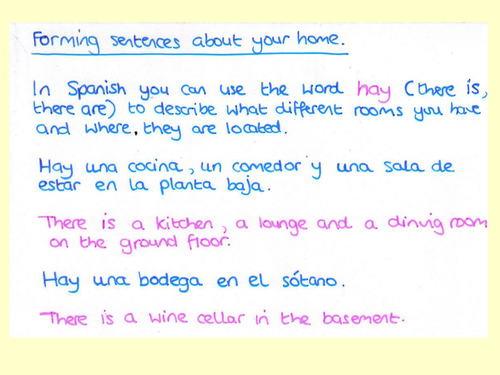 Forming sentences about your home.
In Spanish you can use the word hay (there is,
there are) to describe what different rooms you have
and where, they are located.
Hay una cocina, un comedor y una sala de
estar en la planta baja.
There is a kitchen, a lounge and a dining room
on the ground floor.
Hay una bodega en el sótano.
There is a wine cellar in the basement.